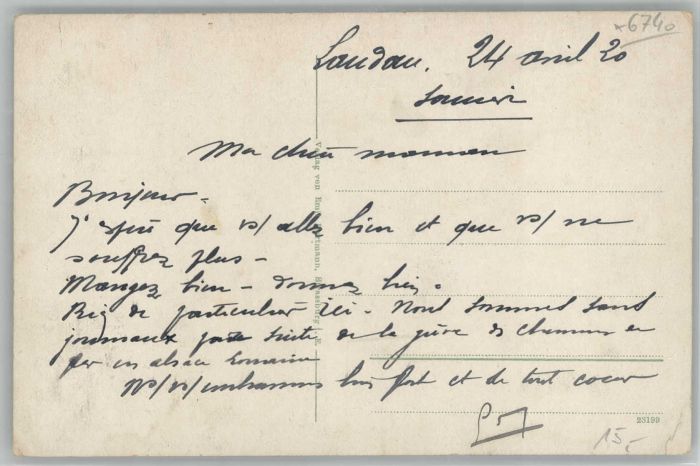 *6740
Landau, 24 avril 20
Samedi
Ma chère maman
Bonjour -
J'espère que vs/ allez bien et que vs/ ne
souffrez plus -
Mangez bien - dormez bien.
Rien de particulier ici. Nous sommes sans
journaux par suite de la grève des chemins de
fer en alsace Lorraine
Ns/ vs/ embrassons bien fort et de tout coeur
Verlag von Hartmann, Strassburg i. E.
23199
15